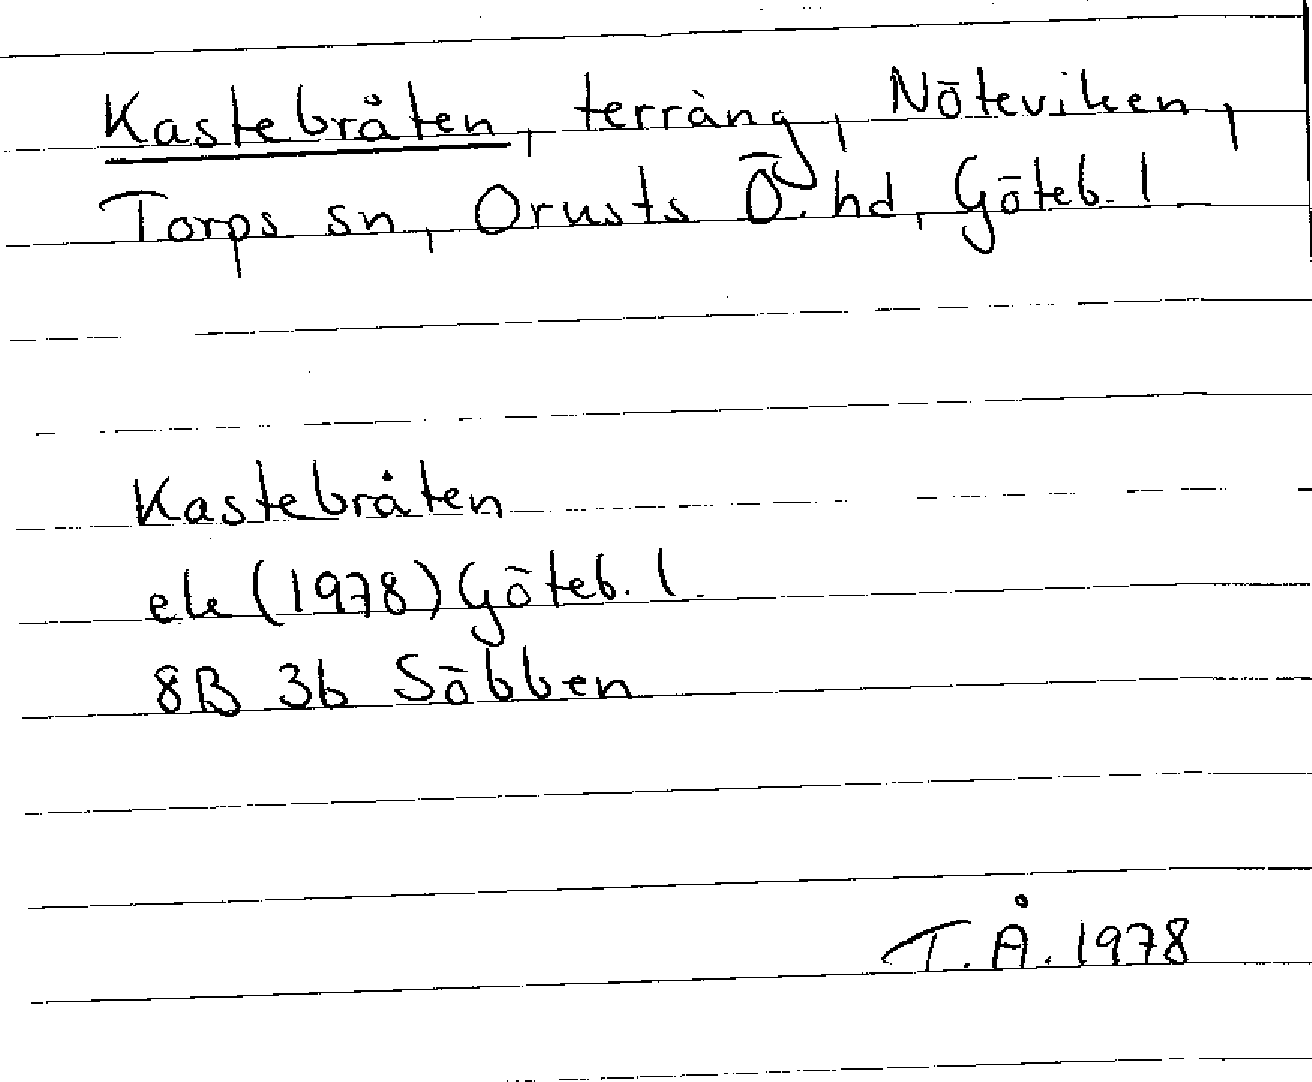 Kastebråten, terräng, Nöteviken,
Torps sn, Orusts Ö. hd, Göteb. l
Kastebråten
ek (1978) Göteb. l
8B 3b Säbben
T.Å. 1978